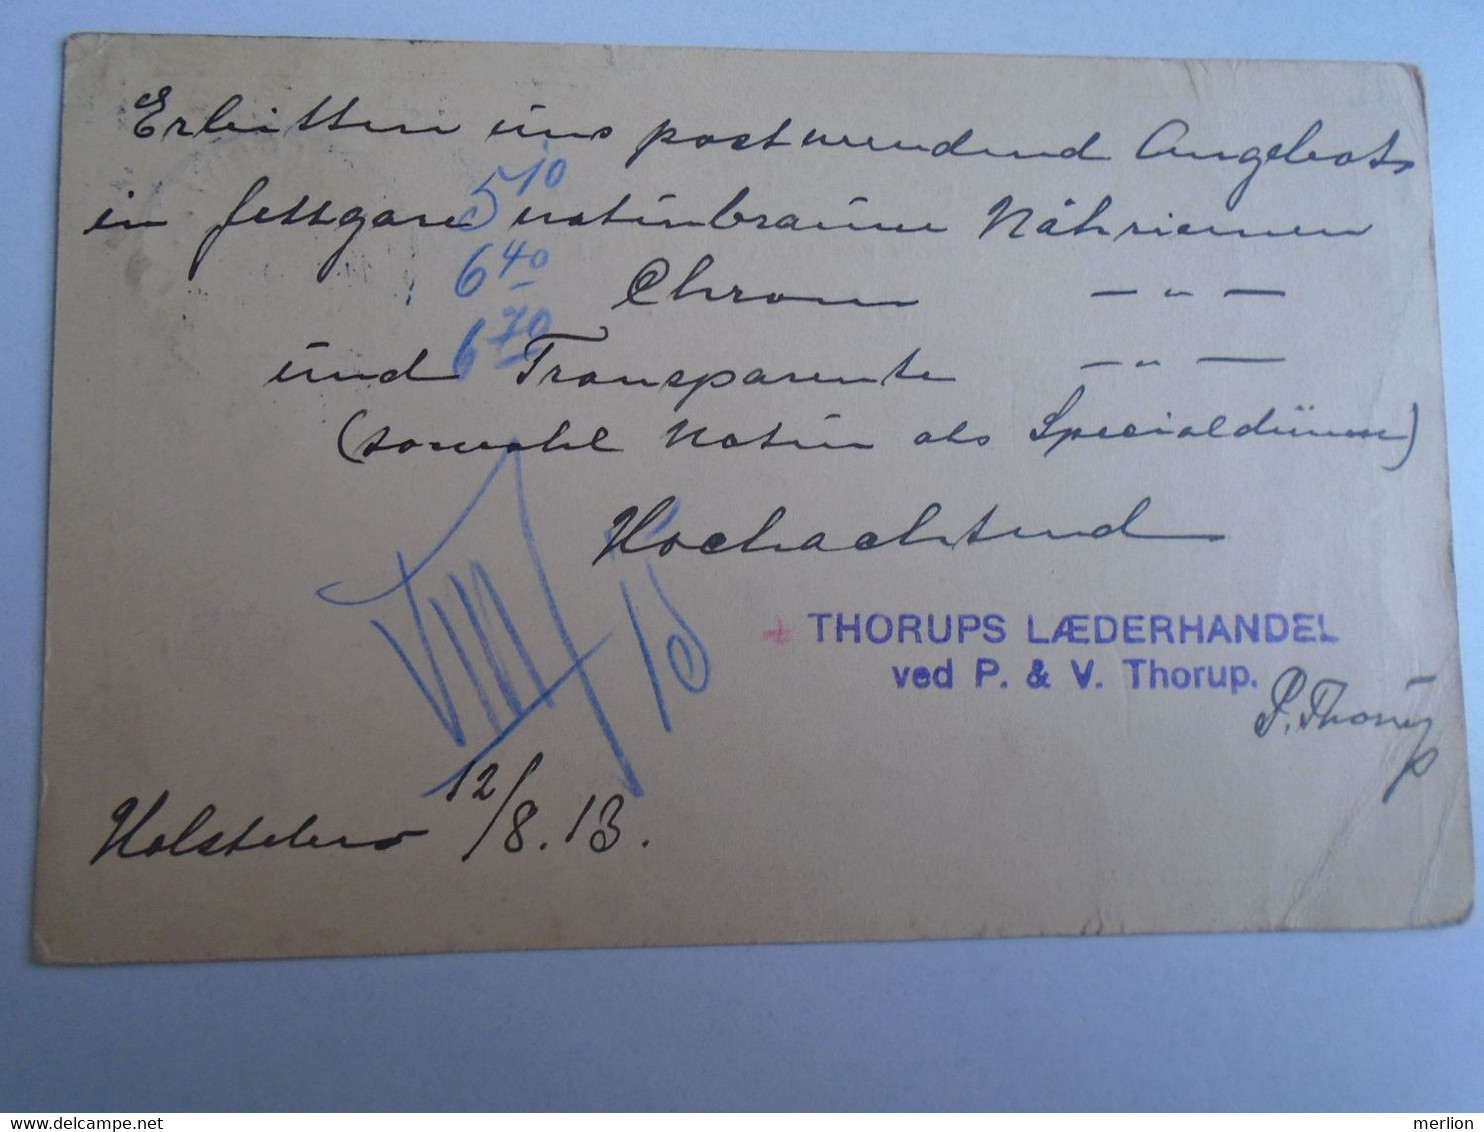 Erbitten uns postwendend Angebots
in fettgare naturbraune Nähriemen
5 10
6 40
Chrom — " —
6 70
und Transparente — " —
(sowohl Natur als Specialdünn)
Hochachtend
THORUPS LÆDERHANDEL
ved P. & V. Thorup.
P. Thorup
Holstebro 12/8. 13.
merlion